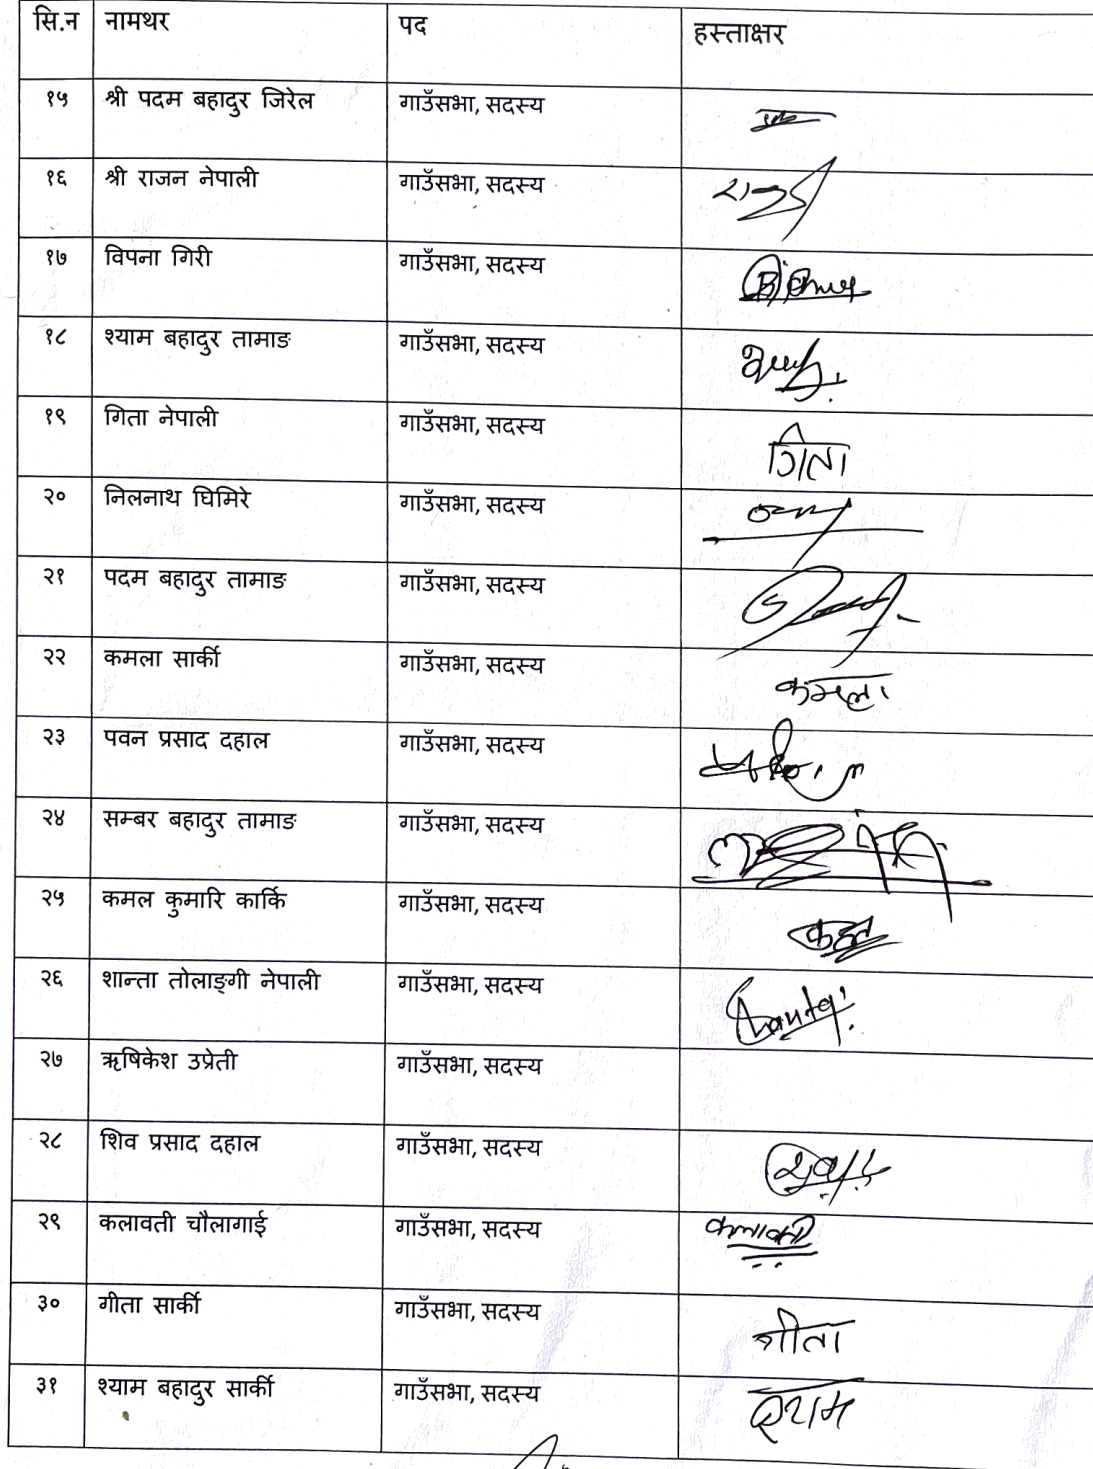 सि.न नामथर पद हस्ताक्षर
१५ श्री पदम बहादुर जिरेल गाउँसभा, सदस्य
१६ श्री राजन नेपाली गाउँसभा, सदस्य
१७ विपना गिरी गाउँसभा, सदस्य
१८ श्याम बहादुर तामाङ गाउँसभा, सदस्य
१९ गिता नेपाली गाउँसभा, सदस्य गिता
२० निलनाथ घिमिरे गाउँसभा, सदस्य
२१ पदम बहादुर तामाङ गाउँसभा, सदस्य
२२ कमला सार्की गाउँसभा, सदस्य कमला
२३ पवन प्रसाद दहाल गाउँसभा, सदस्य
२४ सम्बर बहादुर तामाङ गाउँसभा, सदस्य
२५ कमल कुमारि कार्कि गाउँसभा, सदस्य
२६ शान्ता तोलाङ्गी नेपाली गाउँसभा, सदस्य
२७ ऋषिकेश उप्रेती गाउँसभा, सदस्य
२८ शिव प्रसाद दहाल गाउँसभा, सदस्य
२९ कलावती चौलागाई गाउँसभा, सदस्य कलावती
३० गीता सार्की गाउँसभा, सदस्य गीता
३१ श्याम बहादुर सार्की गाउँसभा, सदस्य श्याम